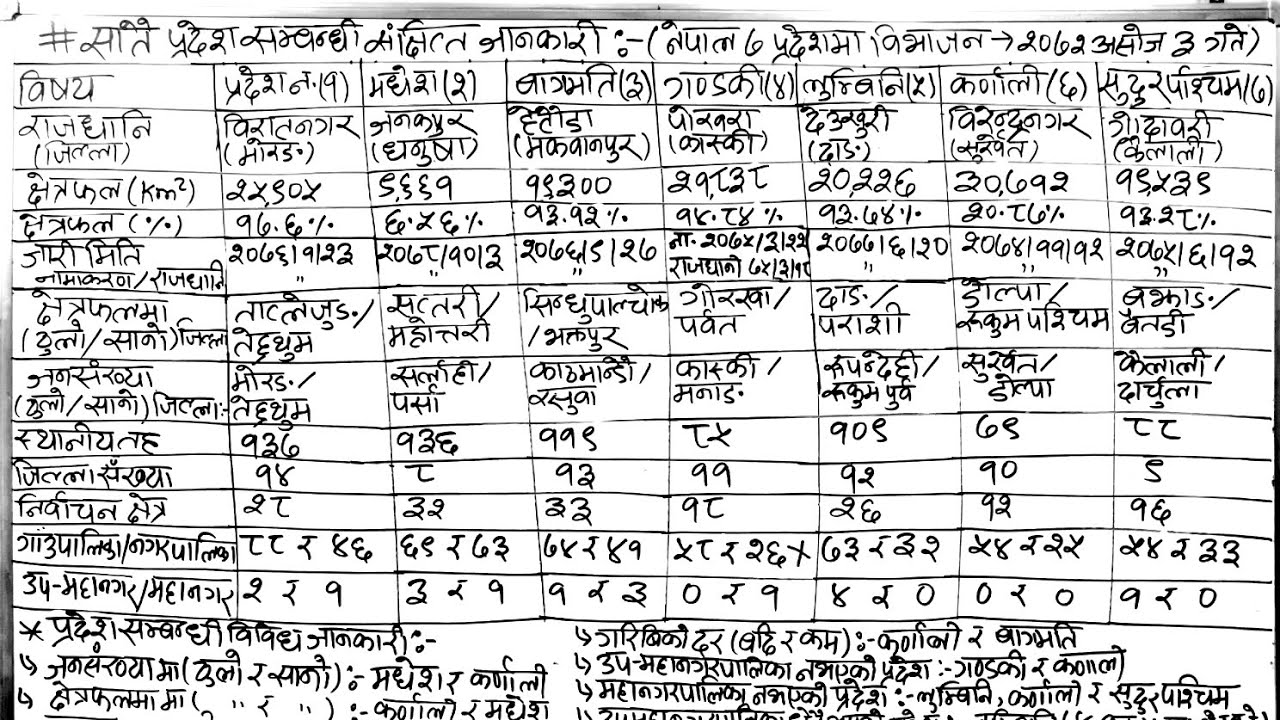 # साते प्रदेश सम्बन्धी संक्षिप्त जानकारी :- (नेपाल ७ प्रदेशमा विभाजन → २०७२ असोज ३ गते)
विषय प्रदेश न.(१) मधेश (२) बागमति(३) गण्डकी(४) लुम्बिनि(५) कर्णाली (६) सुदुरपश्चिम(७)
राजधानि विराटनगर जनकपुर हेटौडा पोखरा देउखुरी विरेन्द्रनगर गोदावरी
(जिल्ला) (मोरङ) (धनुषा) (मकवानपुर) (कास्की) (दाङ) (सुर्खेत) (कैलाली)
क्षेत्रफल (Km²) २५९०५ ९,६६१ १९३०० २१,८३८ २०,२२६ ३०,७१२ १९५३९
क्षेत्रफल (%) १७.६% ६.५६% १३.१२% १४.८४% १३.७४% २०.८७% १३.२८%
जारी मिति २०७६।१।२३ २०७८।१०।३ २०७६।९।२७ ना. २०७५।३।२२ २०७७।६।२० २०७४।११।१२ २०७५।६।१२
नामाकरण/राजधानि " " " राजधानी ७५।३।१८ " " "
क्षेत्रफलमा ताप्लेजुङ/ सप्तरी/ सिन्धुपाल्चोक गोरखा/ दाङ/ डोल्पा/ बझाङ/
(ठुलो/सानो) जिल्ला तेह्रथुम महोत्तरी /भक्तपुर पर्वत पराशी रूकुम पश्चिम बैतडी
जनसंख्या मोरङ/ सर्लाही/ काठमाण्डौ/ कास्की/ रूपन्देही/ सुर्खेत/ कैलाली/
(ठुलो/सानो) जिल्ला:- तेह्रथुम पर्सा रसुवा मनाङ रूकुम पुर्व डोल्पा दार्चुला
स्थानीय तह १३७ १३६ ११९ ८५ १०९ ७९ ८८
जिल्ला संख्या १४ ८ १३ ११ १२ १० ९
निर्वाचन क्षेत्र २८ ३२ ३३ १८ २६ १२ १६
गाउपालिका/नगरपालिका ८८ र ४६ ६९ र ७३ ७४ र ४१ ५८ र २६ ७३ र ३२ ५४ र २५ ५४ र ३३
उप-महानगर/महानगर २ र १ ३ र १ १ र ३ ० र १ ४ र ० ० र ० १ र ०
* प्रदेश सम्बन्धी विविध जानकारी :-
↳ जनसंख्यामा (ठुलो र सानो) :- मधेश र कर्णाली
↳ क्षेत्रफलमा मा ( " र " ) :- कर्णाली र मधेश
↳ गरिबिको दर (बढि र कम) :- कर्णाली र बागमति
↳ उप-महानगरपालिका नभएको प्रदेश :- गण्डकी र कर्णाली
↳ महानगरपालिका नभएको प्रदेश :- लुम्बिनि, कर्णाली र सुदुरपश्चिम